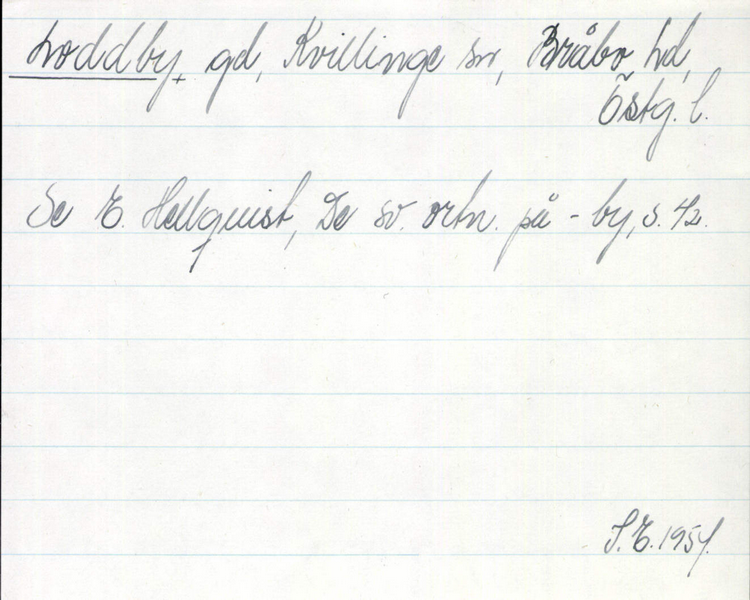 Loddby, gd, Kvillinge sn, Bråbo hd,
Östg. l.
Se E. Hellquist, De sv. ortn. på -by, s. 42.
S.E. 1954.